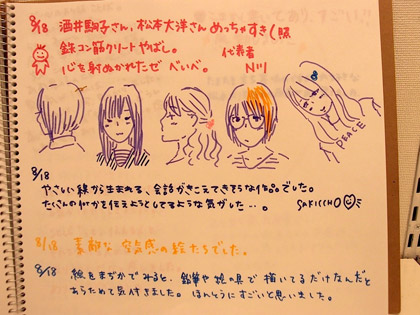 8/18 酒井駒子さん、松本大洋さん めっちゃすき(照
鉄コン筋クリートやばし。 代表者
心を射ぬかれたぜ べいべ。 N川
PEACE
8/18
やさしい線から生まれる、会話がきこえてきそうな作品でした。
たくさんの何かを伝えようとしてるような気がした…。 SAKICCHO
8/18 素敵な空気感の絵たちでした。
8/18 絵をまぢかでみると、鉛筆や絵の具で描いてるだけなんだと
あらためて気付きました。ほんとうにすごいと思いました。